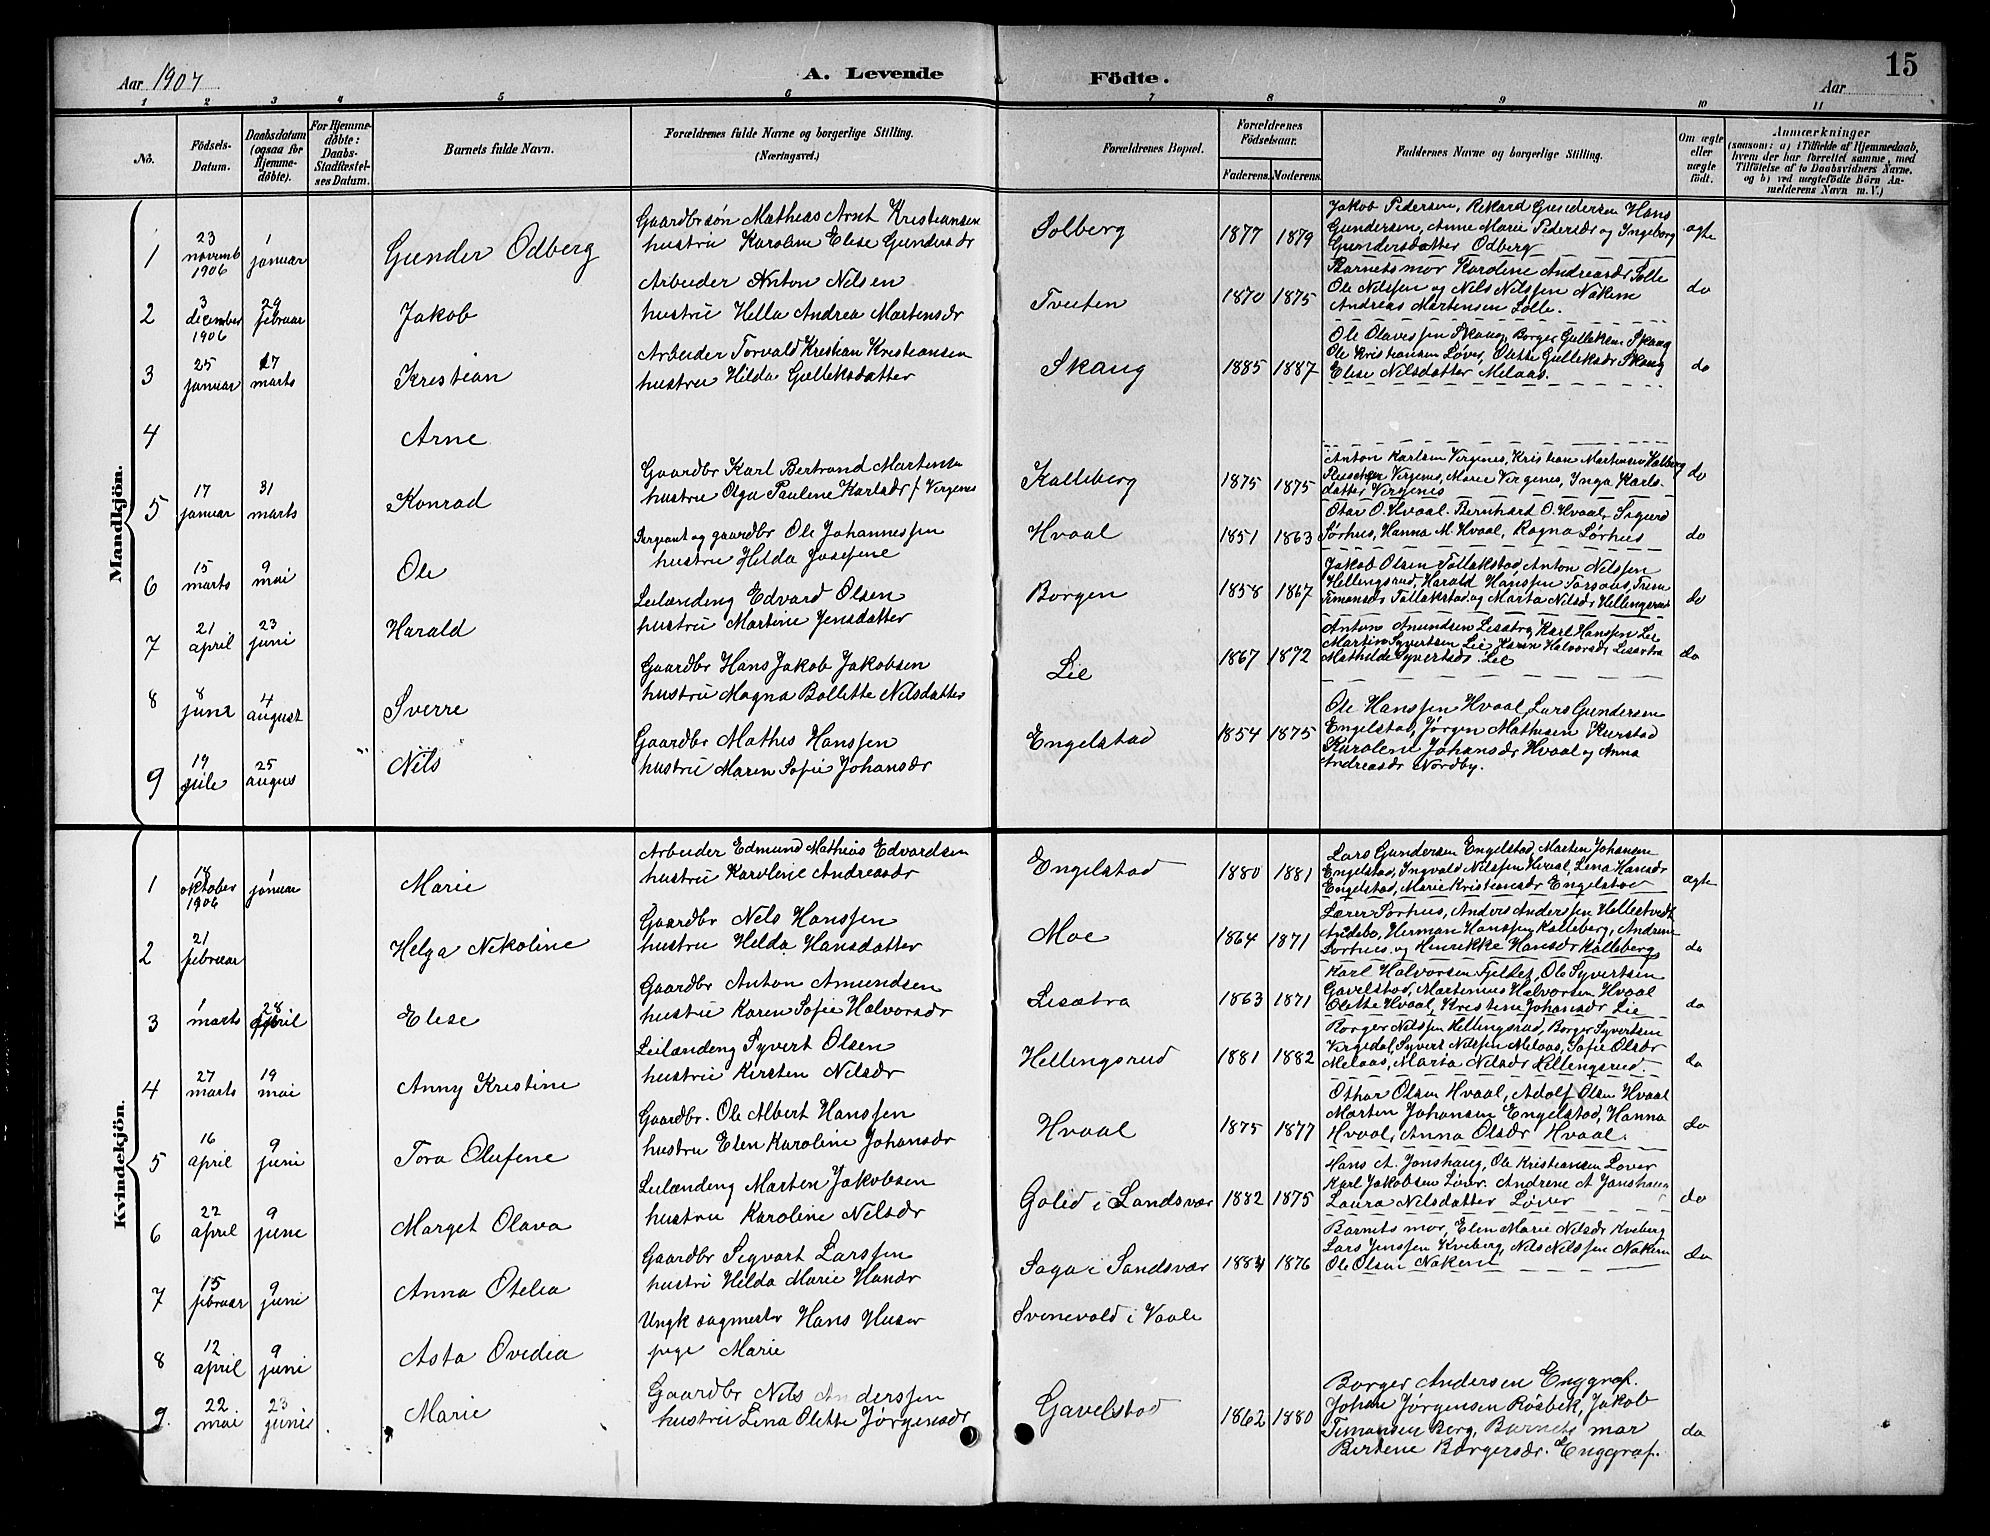 Aar 1907
A. Levende
Födte.
Aar
15
1 2 3 4 5 6 7 8 9 10 11
No.
Födsels-
Datum.
Daabsdatum
(ogsaa for
Hjemme-
döbte).
For Hjemme-
döbte:
Daabs-
Stadfæstel-
ses Datum.
Barnets fulde Navn.
Forældrenes fulde Navne og borgerlige Stilling.
(Næringsvei.)
Forældrenes Bopæl.
Forældrenes
Födselsaar.
Faderens. Moderens.
Faddernes Navne og borgerlige Stilling.
Om ægte
eller
uægte
födt.
Anmærkninger
(saasom: a) i Tilfælde af Hjemmedaab,
hvem der har forrettet samme, med
Tilföielse af to Daabsvidners Navne.
og b) ved uægtefödte Börn An-
melderens Navn m. V.)
Mandkjön.
1
23
novemb
1906
1
januar
Gunder Odberg
Gaardbrsön Mathias Arnt Kristiansen
hustru Karoline Elise Gundersdr
Solberg
1877 1879
Jakob Pedersen, Rikard Gundersen Hans
Gundersen, Anne Marie Pedersdr og Ingeborg
Gundersdatter Odberg
ægte
2
3
december
1906
29
februar
Jakob
Arbeider Anton Nilsen
hustru Hella Andrea Martensdr
Tveiten
1870 1875
Barnets mor Karoline Andreasdr Solle
Ole Nilssen og Nils Nilssen Nakem
Andreas Martensen Lolle.
do
3
25
januar
17
marts
Kristian
Arbeider Torvald Kristian Kristiansen
hustru Hilda Gulleksdatter
Skaug
1885 1887
Ole Olavessen Skaug, Borger Gulleksen Skaug
Ole Kristiansen Løver, Olette Gulleksdr Skaug
Elise Nilsdatter Melaas.
do
4
Arne
5
17
januar
31
marts
Konrad
Gaardbr Karl Bertrand Martensen
hustru Olga Pauline Karlsdr f. Virgenes
Kalleberg
1875 1875
Anton Karlsen Virgenes, Kristian Martinsen Kalleberg
Virgenes, Marie Virgenes, Inga Karls-
datter Virgenes
do
6
15
marts
9
mai
Ole
Sergeant og gaardbr Ole Johannessen
hustru Hilda Josefine
Hvaal
1851 1863
Otar O. Hvaal. Bernhart O. Hvaal, Sigurd
Sørhus, Hanna M. Hvaal, Ragna Sørhus
do
7
21
april
23
juni
Harald
Leilænding Edvard Olsen
hustru Martine Jensdatter
Borgen
1858 1867
Jakob Olsen Tollakstad, Anton Nilssen
Hellingsrud, Harald Hanssen
Timansdr Tollakstad og Marta Nilsdr Hellingsrud
do
8
8
juni
4
august
Sverre
Gaardbr Hans Jakob Jakobsen
hustru Magna Bollette Nilsdatter
Lie
1867 1872
Anton Amundsen Lisætra, Karl Hanssen Lie
Martin Syvertsen Lie, Karen Halvorsdr Lisætra
Mathilde Syvertsdr Lie
do
9
19
25
augus
Nils
Gaardbr Mathis Hanssen
hustru Maren Sofie Johansdr
Engelstad
1854 1875
Ole Hanssen Hvaal, Lars Gundersen
Engelstad, Jørgen Mathisen
Karoline Johansdr Hvaal og Anna
Andreasdr Nordby.
Kvindekjön.
1
18
oktober
1906
1
januar
Marie
Arbeider Edmund Mathias Edvardsen
hustru Karoline Andreasdr
Engelstad
1880 1881
Lars Gundersen Engelstad, Marten Johansen
Engelstad, Ingvald Nilssen Hvaal, Lina Hansdr
Engelstad, Marie Kristiansdr Engelstad
ægte
2
21
februar
Helga Nikoline
Gaardbr Nils Hanssen
hustru Hilda Hansdatter
Moe
1864 1871
Lærer Sørhus, Anders Anderssen Hellestvedt
Herman Hanssen Kalleberg, Andrine
Sørhus og Henrikke Hansdr Kalleberg
do
3
1
marts
28
april
Elise
Gaardbr Anton Amundsen
hustru Karen Sofie Halvorsdr
Lisætra
1863 1871
Karl Halvorsen Fjeldet, Ole Syvertsen
Gavelstad, Martinius Halvorsen Hvaal
Olette Hvaal, Kristine Johansdr Lie
do
4
27
marts
19
mai
Anny Kristine
Leilænding Syvert Olsen
hustru Kirsten Nilsdr
Hellingsrud
1881 1882
Borger Nilssen Hellingsrud, Borger Syvertsen
Virgedal, Syvert Nilssen Melaas, Sofie Olsdr
Melaas, Maria Nilsdr Hellingsrud.
do
5
16
april
9
juni
Tora Olufine
Gaardbr. Ole Albert Hanssen
hustru Elen Karoline Johansdr
Hvaal
1875 1877
Othar Olsen Hvaal, Adolf Olsen Hvaal
Marten Johansen Engelstad, Hanna
Hvaal, Anna Olsdr Hvaal.
do
6
22
april
9
june
Marget Olava
Leilænding Marten Jakobsen
hustru Karoline Nilsdr
Golid i Sandsvær
1882 1875
Hans A. Jonshaug, Ole Kristiansen Løver
Karl Jakobsen Løver. Andrine A Jonshaug
Laura Nilsdatter Løver
do
7
15
februar
9
juni
Anna Otelia
Gaardbr Sigvart Larssen
hustru Hilda Marie Hansdr
Saga i Sandsvær
1884 1876
Barnets mor, Elen Marie Nilsdr Kveberg
Lars Jenssen Kveberg, Nils Nilssen Nakem
Ole Olsen Nakem
do
8
12
april
9
juni
Asta Ovedia
Ungk sagmester Hans Huser
pige Marie
Svinevold i Vaale
9.
22
mai
23
juni
Marie
Gaardbr Nils Anderssen
hustru Lina Olette Jørgensdr
Gavelstad
1862 1880
Borger Andersen Enggraf.
Johan Jørgensen Røsbek, Jakob
Timansen Berg, Barnets mor
Birtine Borgersdr. Enggraf.
do